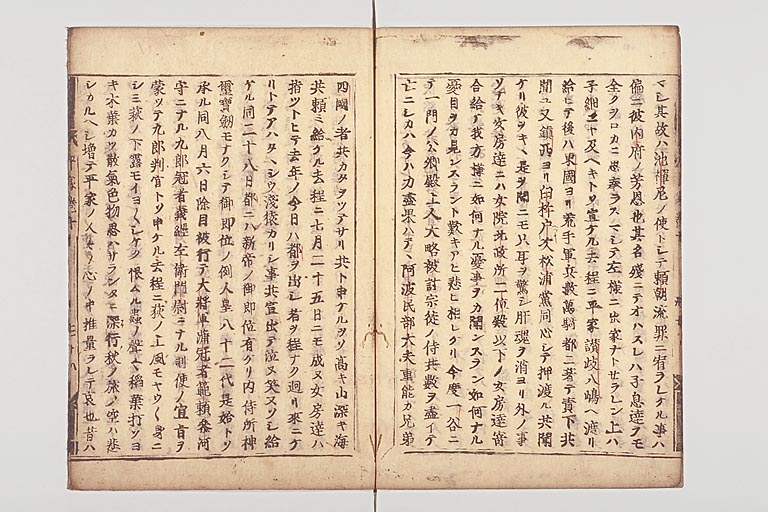 マシ其故ハ池禅尼ノ使トシテ頼朝流罪ニ宥ラレケル事ハ
偏ニ彼内府ノ芳恩也其名残ニテオハスレハ子息達ヲモ
全クヲロカニ思奉ラスマシテ左様ニ出家ナトサラレン上ハ
子細ニヤ及ヘキトソ宣ケル去程ニ平家讃岐八嶋ヘ渡リ
給ヒテ後ハ東國ヨリ荒手軍兵數萬騎都ニ著テ責下共
聞ユ又鎮西ヨリ臼杵戸次松浦黨同心シテ押渡ル共聞
ケリ彼ヲキヽ是ヲ聞ニモ只耳ヲ驚シ肝魂ヲ消ヨリ外ノ事
ソナキ女房達ニハ女院北政所二位殿以下ノ女房達寄
合給テ我方樣ニ如何ナル憂事ヲカ聞ンスラン如何ナル
憂目ヲカ見ンスラント歎キアヒ悲ヒ相レケリ今度一谷ニ
テ一門ノ公卿殿上人大略被討宗徒ノ侍共數ヲ盡イテ
亡ニシカハ今ハ力盡果ハテヽ阿波民部大夫重能カ兄弟
四國ノ者共カタラツテサリ共ト申ケルヲソ高キ山深キ海
共頼ミ給ケル去程ニ七月二十五日ニモ成ヌ女房達ハ
指ツトヒテ去年ノ今日ハ都ヲ出シ者ヲ程ナク廻リ來ニケ
リトテアハタヽシウ淺猿カリシ事共宣出テ泣ヌ笑ヌソシ給
ケル同二十八日都ニハ新帝ノ御即位有ケリ内侍所神
璽寶劔モナクシテ御即位ノ例人皇八十二代是始トソ
承ル同八月六日除目被行テ大將軍蒲冠者範頼參河
守ニナル九郎冠者義經左衛門尉ニナル則使ノ宣旨ヲ
蒙ツテ九郎判官トソ申ケル去程ニ荻ノ上風モヤウヽヽ身ニ
シミ萩ノ下露モイヨヽヽシケク恨ムル蟲ノ聲々稲葉打ソヨ
キ木葉カツ散氣色物思ハサランタニ深行秋ノ旅ノ空ハ悲
シカルヘシ増テ平家ノ人々ノ心ノ中推量ラレテ哀也昔ハ